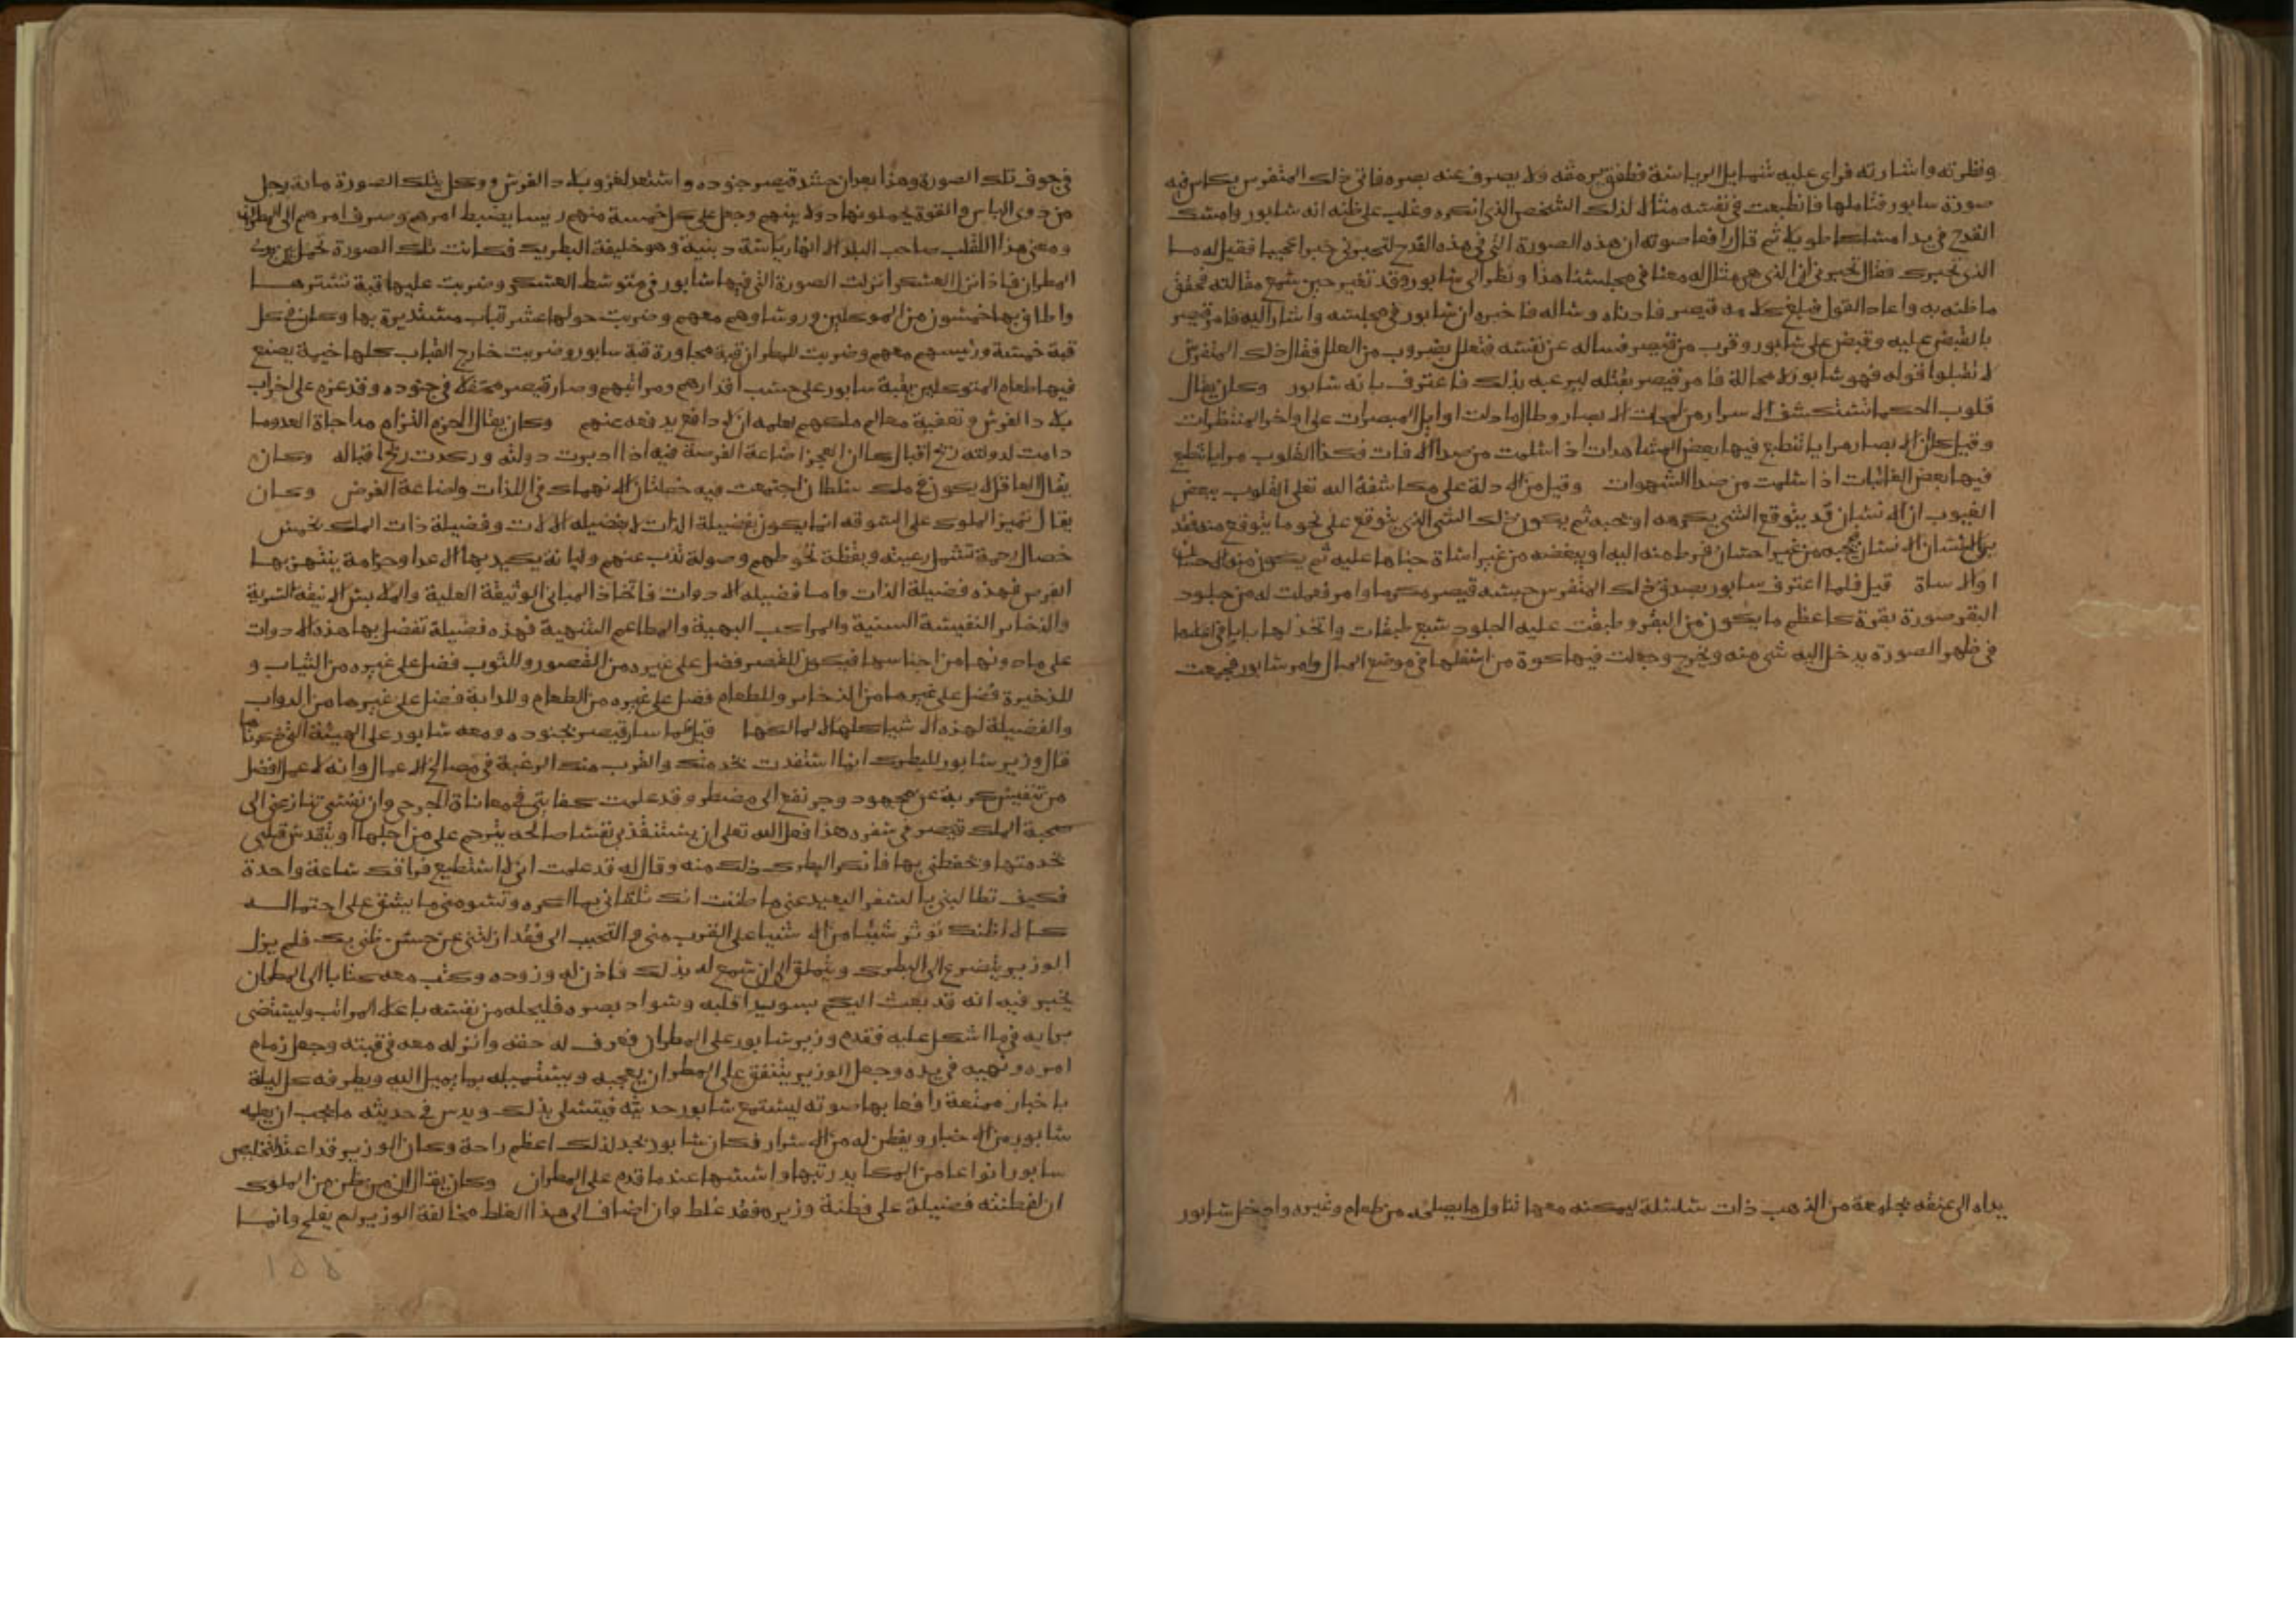 ونظرته واشارته فراى عليه شمايل الرياسة فطفق يرمقه ولا يصرف عنه بصره فاتى ذلك المتفرس بكاس فيه
صورة سابور فتاملها فانطبعت في نفسه مثالا لذلك الشخص الذي انكره وغلب على ظنه انه شابور وامسك
القدح في يده امساكا طويلا ثم قال رافعا صوته ان هذه الصورة التي في هذه القدح لتخبرني خبرا عجيبا فقيل له ما
الذي تخبرك فقال تخبرني ان الذي هي مثال له معنا في مجلسنا هذا ونظر الى شابور وقد تغير حين سمع مقالته فحقق
ما ظنه به واعاد القول فبلغ كلامه قيصر فادناه وساله فاخبره ان شابور في مجلسه واشار اليه فامر قيصر
بالقبض عليه وقبض على شابور وقرب من قيصر فساله عن نفسه فتعلل بضروب من العلل فقال ذلك المتفرس
لا تقبلوا قوله فهو شابور لا محالة فامر قيصر بقتله ليرعبه بذلك فاعترف بانه شابور وكان يقال
قلوب الحكما تستكشف الاسرار من لمحات الابصار وطال ما دلت اوايل المبصرات على اواخر المنتظرات
وقيل كما ان الابصار مرايا تنطبع فيها بعض المشاهدات اذا سلمت من صدا الافات فكذا القلوب مرايا تنطبع
فيها بعض الغائبات اذا سلمت من صدا الشهوات وقيل من الادلة على مكاشفة الله تعلى القلوب ببعض
الغيوب ان الانسان قد يتوقع الشي يكرهه او يحبه ثم يكون ذلك الشي الذي يتوقع على نحو ما يتوقع منه وقد
يرى الانسان الانسان فيحبه من غير احسان فرط منه اليه او يبغضه من غير اساة جناها عليه ثم يكون منه الاحسان
او الاساة قيل فلما اعترف سابور بصدق ذلك المتفرس حبسه قيصر مكرما وامر فعملت له من جلود
البقر صورة بقرة كاعظم ما يكون من البقر وطبقت عليه الجلود سبع طبقات واتخذ لها بابا في اعلاها
في ظهر الصورة يدخل اليه شي منه ويخرج وجعلت فيها كوة من اسفلها في موضع المبال وامر شابور فجمعت
يداه الى عنقه بجامعة من الذهب ذات سلسلة ليمكنه معها تناول ما يصلحه من طعام وغيره وادخل شابور
في جوف تلك الصورة وهذا بعد ان حشد قيصر جنوده واستعد لغزو بلاد الفرس ووكل بتلك الصورة ماية رجل
من ذوي الباس والقوة يحملونها دولا بينهم وجعل على كل خمسة منهم رييسا يضبط امرهم وصرف امرهم الى المطران
ومعنى هذا اللقب صاحب البلد الا انها رياسة دينية وهو خليفة البطريك فكانت تلك الصورة تحمل بين يدي
المطران فاذا نزل العسكر انزلت الصورة التي فيها شابور في متوسط العسكر وضربت عليها قبة تسترها
واطاف بها خمسون من الموكلين وروساوهم معهم وضربت حولها عشر قباب مستديرة بها وكان في كل
قبة خمسة ورئيسهم معهم وضربت للمطران قبة مجاورة قبة سابور وضربت خارج القباب كلها خيمة يصنع
فيها طعام المتوكلين بقبة سابور على حسب اقدارهم ومراتبهم وصار قيصر محتفلا في جنوده وقد عزم على خراب
بلاد الفرس وتعفية معالم ملكهم لعلمه ان لا دافع يدفعه عنهم وكان يقال الحزم التزام مداجاة العدو ما
دامت لدولته ريح اقبال كما ان العجز اضاعة الفرصة فيه اذا ادبرت دولته وركدت ريح اقباله وكان
يقال العاقل لا يكون في ملك سلطان اجتمعت فيه خصلتان الانهماك في اللذات واضاعة الفرص وكان
يقال تميز الملوك على السوقه انما يكون بفضيلة الذات لا بفضيله الالات وفضيلة ذات الملك بخمس
خصال رحمة تشمل رعيته ويقظة تحوطهم وصولة تذب عنهم ولبانة يكيد بها الاعدا وحزامة ينتهز بها
الفرص فهذه فضيلة الذات واما فضيله الادوات فاتخاذ المباني الوثيقة العلية والملابس الانيقة السرية
والذخاير النفيسة السنية والمراكب البهية والمطاعم الشهية فهذه فضيلة تفضل بها هذه الادوات
على ما دونها من اجناسها فيكون للقصر فضل على غيره من القصور وللثوب فضل على غيره من الثياب و
للذخيرة فضل على غيرها من الذخاير وللطعام فضل على غيره من الطعام وللدابة فضل على غيرها من الدواب
والفضيلة لهذه الاشيا كلها لا لمالكها قيل فلما سار قيصر بجنوده ومعه شابور على الهيئة التي ذكرناها
قال وزير شابور للبطرك انما استفدت بخدمتك والقرب منك الرغبة في مصالح الاعمال وانه لا عمل افضل
من تنفيس كربة عن مجهود وجر نفع الى مضطر وقد علمت كفايتي في معاناة الجرحى وان نفسي تنازعني الى
صحبة الملك قيصر في سفره هذا فعل الله تعلى ان يستنقذ بي نفسا صالحه يترحم علي من اجلها او يتقدس قلبي
بخدمتها وحفظني بها فانكر البطرك ذلك منه وقال له قد علمت اني لا استطيع فراقك ساعة واحدة
فكيف تطالبني بالسفر البعيد عني ما ظننت انك تلقاني بما اكره وتسومني ما يشق علي احتماله
كما لا اظنك توثر شيئا من الاشيا على القرب مني والتحبب الي فقد ازلتني عن حسن ظني بك فلم يزل
الوزير يتضرع الى البطرك ويتملق الى ان سمح له بذلك فاذن له وزوده وكتب معه كتابا الى المطران
يخبر فيه انه قد بعث اليكم بسويدا قلبه وسواد بصره فليحله من نفسه باعلا المراتب وليستضي
برايه في ما اشكل عليه فقدم وزير شابور على المطران فعرف له حقه وانزله معه في قبته وجعل زمام
امره ونهيه في يده وجعل الوزير يتنفق على المطران بعجبه ويستميله بما يميل اليه ويطرفه كل ليلة
باخبار ممتعة رافعا بها صوته ليستمع شابور حديثه فيتسلى بذلك ويدس في حديثه ما يحب ان يعلمه
شابور من الاخبار ويفطن له من الاسرار فكان شابور يجد لذلك اعظم راحة وكان الوزير قد اعد لتخليص
سابور انواعا من المكايد رتبها واسسها عند ما قدم على المطران وكان يقال ان من ظن من الملوك
ان لفطنته فضيلة على فطنة وزيره فقد غلط وان اضاف الى هذا الغلط مخالفة الوزير لم يفلح وانما